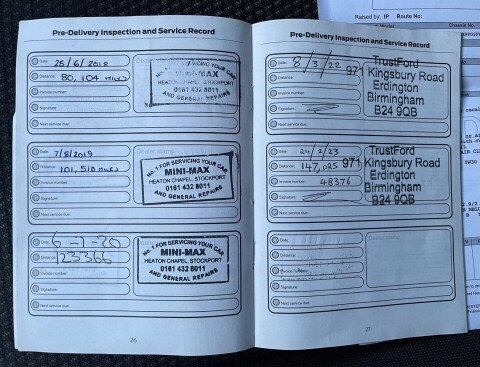 Pre-Delivery Inspection and Service Record
Date: 25/6/2018
Distance: 80,104 miles
Invoice number:
Signature:
Next service due:
No. 1 FOR SERVICING YOUR CAR
MINI-MAX
HEATON CHAPEL, STOCKPORT
0161 432 8011
AND GENERAL REPAIRS
Date: 7/8/2019
Distance: 101,510 miles
Invoice number:
Signature:
Next service due:
Dealer stamp
No. 1 FOR SERVICING YOUR CAR
MINI-MAX
HEATON CHAPEL, STOCKPORT
0161 432 8011
AND GENERAL REPAIRS
Date: 6-7-20
Distance: 123366
Invoice number:
Signature:
Next service due:
No. 1 FOR SERVICING YOUR CAR
MINI-MAX
HEATON CHAPEL, STOCKPORT
0161 432 8011
AND GENERAL REPAIRS
26
Pre-Delivery Inspection and Service Record
Date: 8/3/22
Distance:
Invoice number:
Signature:
Next service due:
TrustFord
971 Kingsbury Road
Erdington
Birmingham
B24 9QB
Date: 24/2/23
Distance: 147,025
Invoice number: 48376
Signature:
Next service due:
TrustFord
971 Kingsbury Road
Erdington
Birmingham
B24 9QB
Date:
Distance:
Invoice number:
Signature:
Next service due:
27
Raised by: IP Route No:
Model
Chassis No.